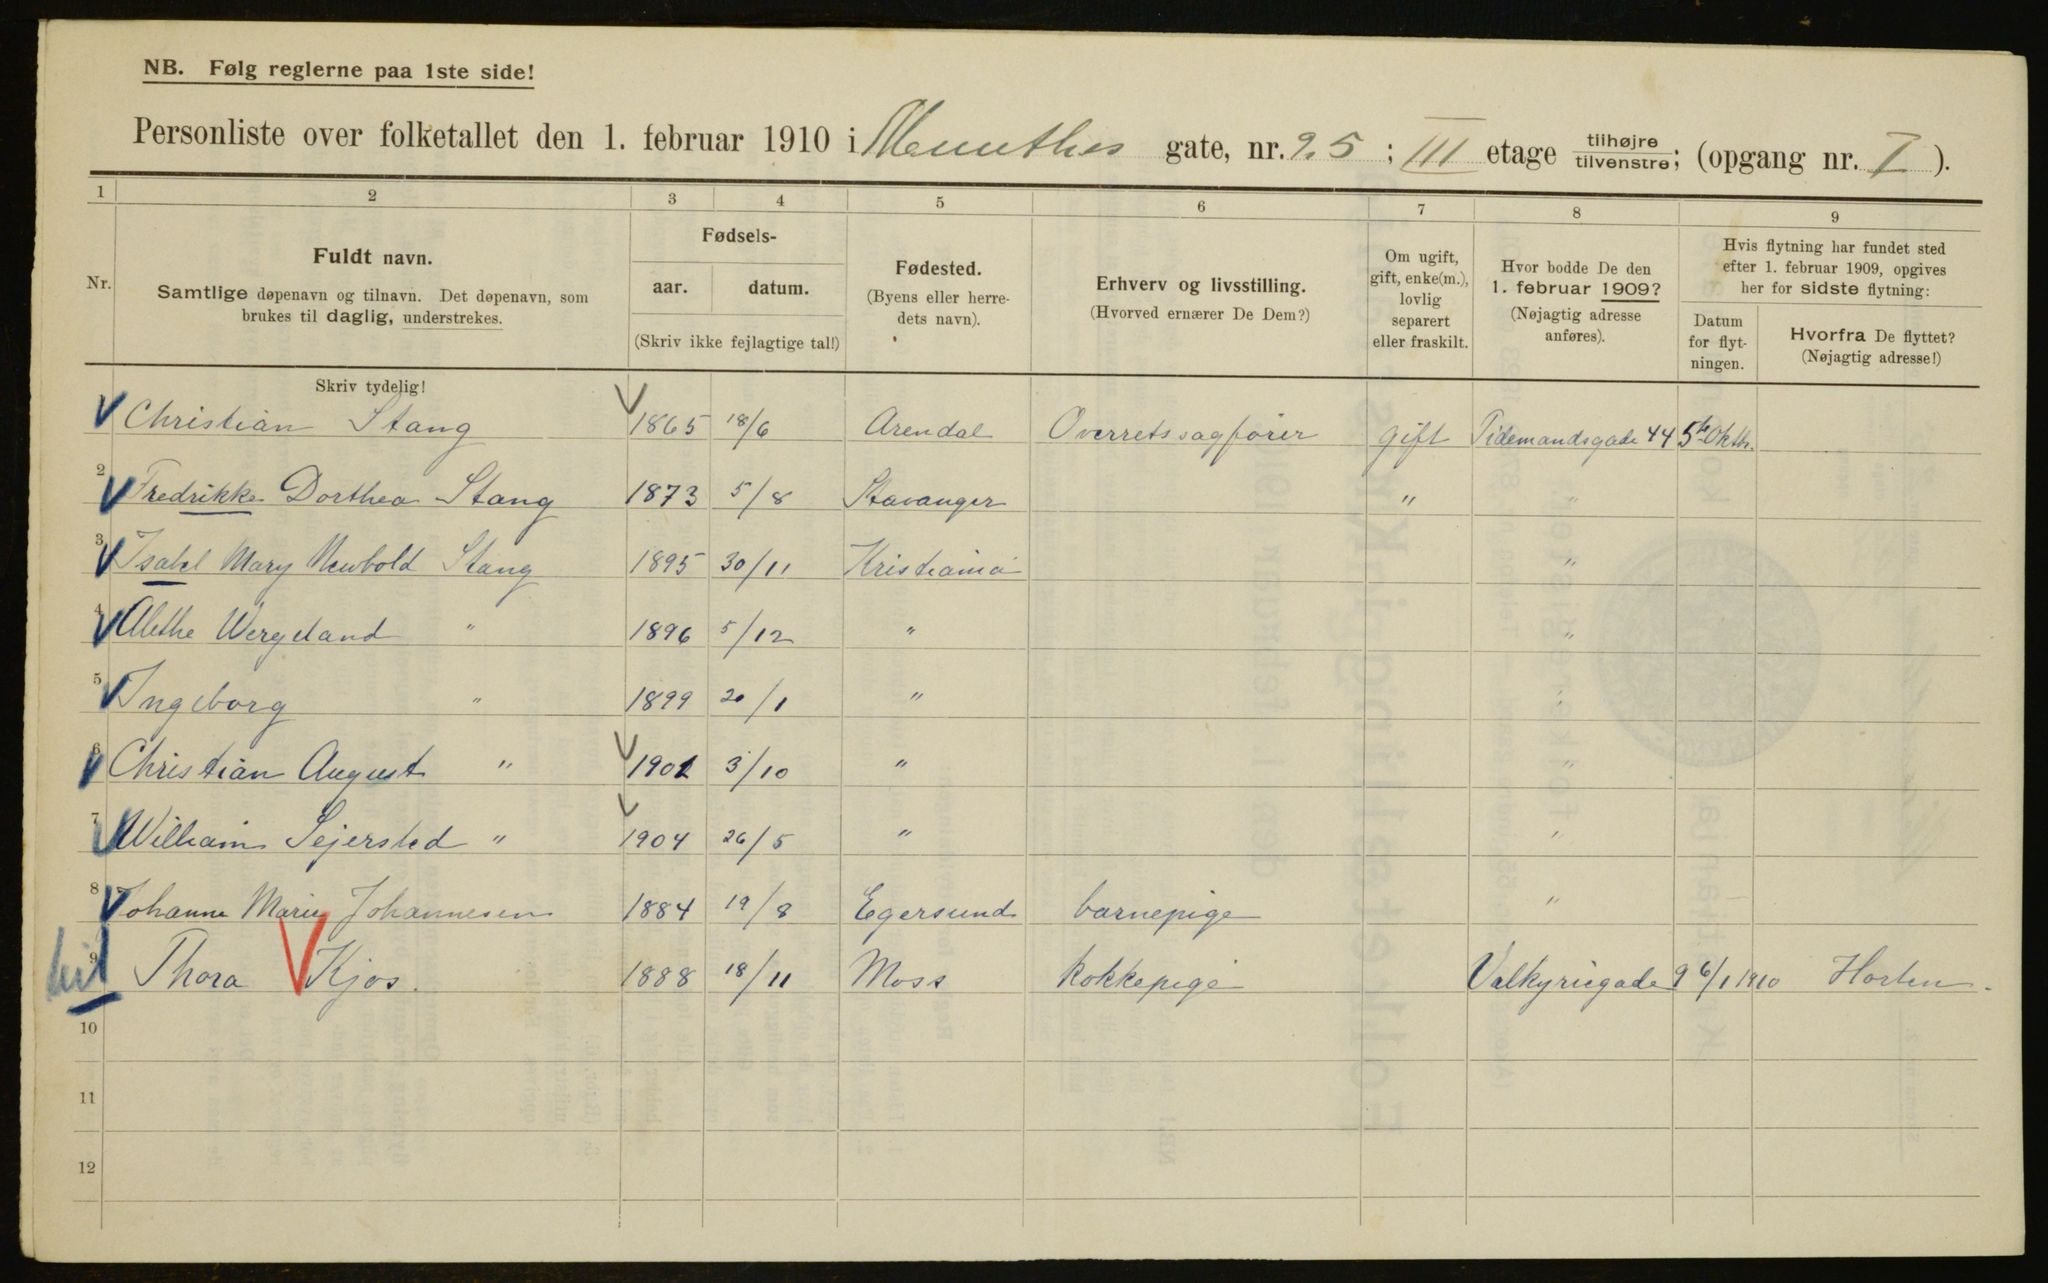 NB. Følg reglerne paa 1ste side!
Personliste over folketallet den 1. februar 1910 i Munthes gate, nr. 25 ; III etage tilhøjre tilvenstre; (opgang nr. I ).
1 2 3 4 5 6 7 8 9
Nr.
Fuldt navn.
Samtlige døpenavn og tilnavn. Det døpenavn, som
brukes til daglig, understrekes.
Fødsels-
aar. datum.
(Skriv ikke fejlagtige tal!)
Fødested.
(Byens eller herre-
dets navn).
Erhverv og livsstilling.
(Hvorved ernærer De Dem?)
Om ugift,
gift, enke(m.),
lovlig
separert
eller fraskilt.
Hvor bodde De den
1. februar 1909?
(Nøjagtig adresse
anføres).
Hvis flytning har fundet sted
efter 1. februar 1909, opgives
her for sidste flytning:
Datum
for flyt-
ningen.
Hvorfra De flyttet?
(Nøjagtig adresse!)
Skriv tydelig!
Christian Stang 1865 18/6 Arendal Overretssagfører gift Tidemandsgade 44 5te Oktb.
2 Fredrikke Dorthea Stang 1873 5/8 Stavanger " "
3 Isabel Mary Newbold Stang 1895 30/11 Kristiania "
4 Alethe Wergeland " 1896 5/12 " "
5 Ingeborg " 1899 20/1 " "
6 Christian August " 1902 3/10 " "
7 William Sejersted " 1904 26/5 " "
8 Johanne Marie Johannesen 1884 19/8 Egersund barnepige "
9 Thora Kjos. 1888 18/11 Moss kokkepige Valkyriegade 9 6/1 1910 Horten.
10
11
12